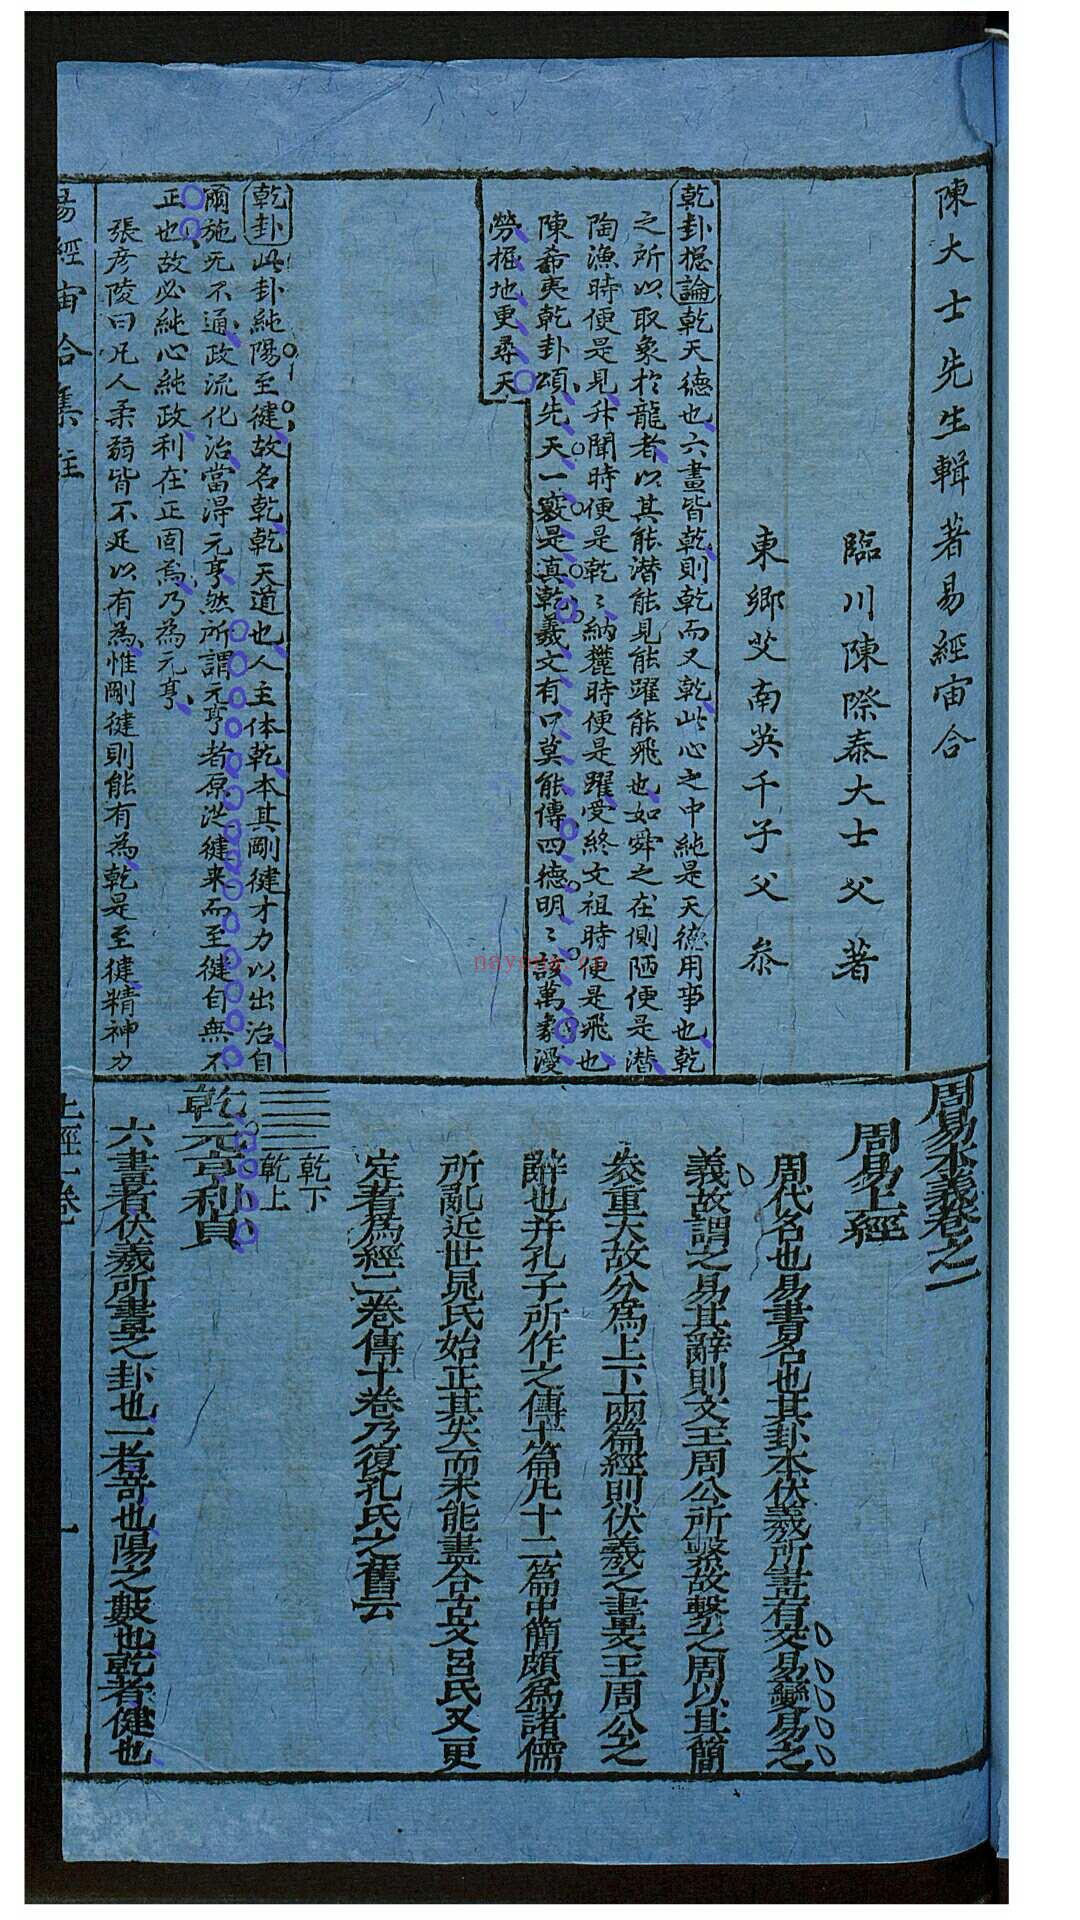 陳大士先生輯著易經宙合
臨川陳際泰大士父著
東鄉艾南英千子父叅
乾卦揔論乾天德也六畫皆乾則乾而又乾此心之中純是天德用事也乾
之所以取象於龍者以其能潛能見能躍能飛也如舜之在側陋便是潛
陶漁時便是見升聞時便是乾〻納麓時便是躍受終文祖時便是飛也
陳希夷乾卦頌先天一竅是真乾羲文有口莫能傳四德明〻該萬象漫
勞掘地更尋天
乾卦此卦純陽至健故名乾乾天道也人主体乾本其剛健才力以出治自
爾施无不通政流化洽當得元亨然所謂元亨者原從健来而至健自無不
正也故必純心純政利在正固焉乃為元亨
張彦陵曰凡人柔弱皆不足以有為惟剛健則能有為乾是至健精神力
易經宙合集註
周易本義卷之一
周易上經
周代名也易書名也其卦本伏羲所畫有交易變易之
義故謂之易其辭則文王周公所繫故繫之周以其簡
袠重大故分爲上下兩篇經則伏羲之畫文王周公之
辭也并孔子所作之傳十篇凡十二篇中間頗爲諸儒
所亂近世晁氏始正其失而未能盡合古文呂氏又更
定著爲經二卷傳十卷乃復孔氏之舊云
乾下
乾上
乾元亨利貞
六畫者伏羲所畫之卦也一者奇也陽之數也乾者健也
上經一卷
一